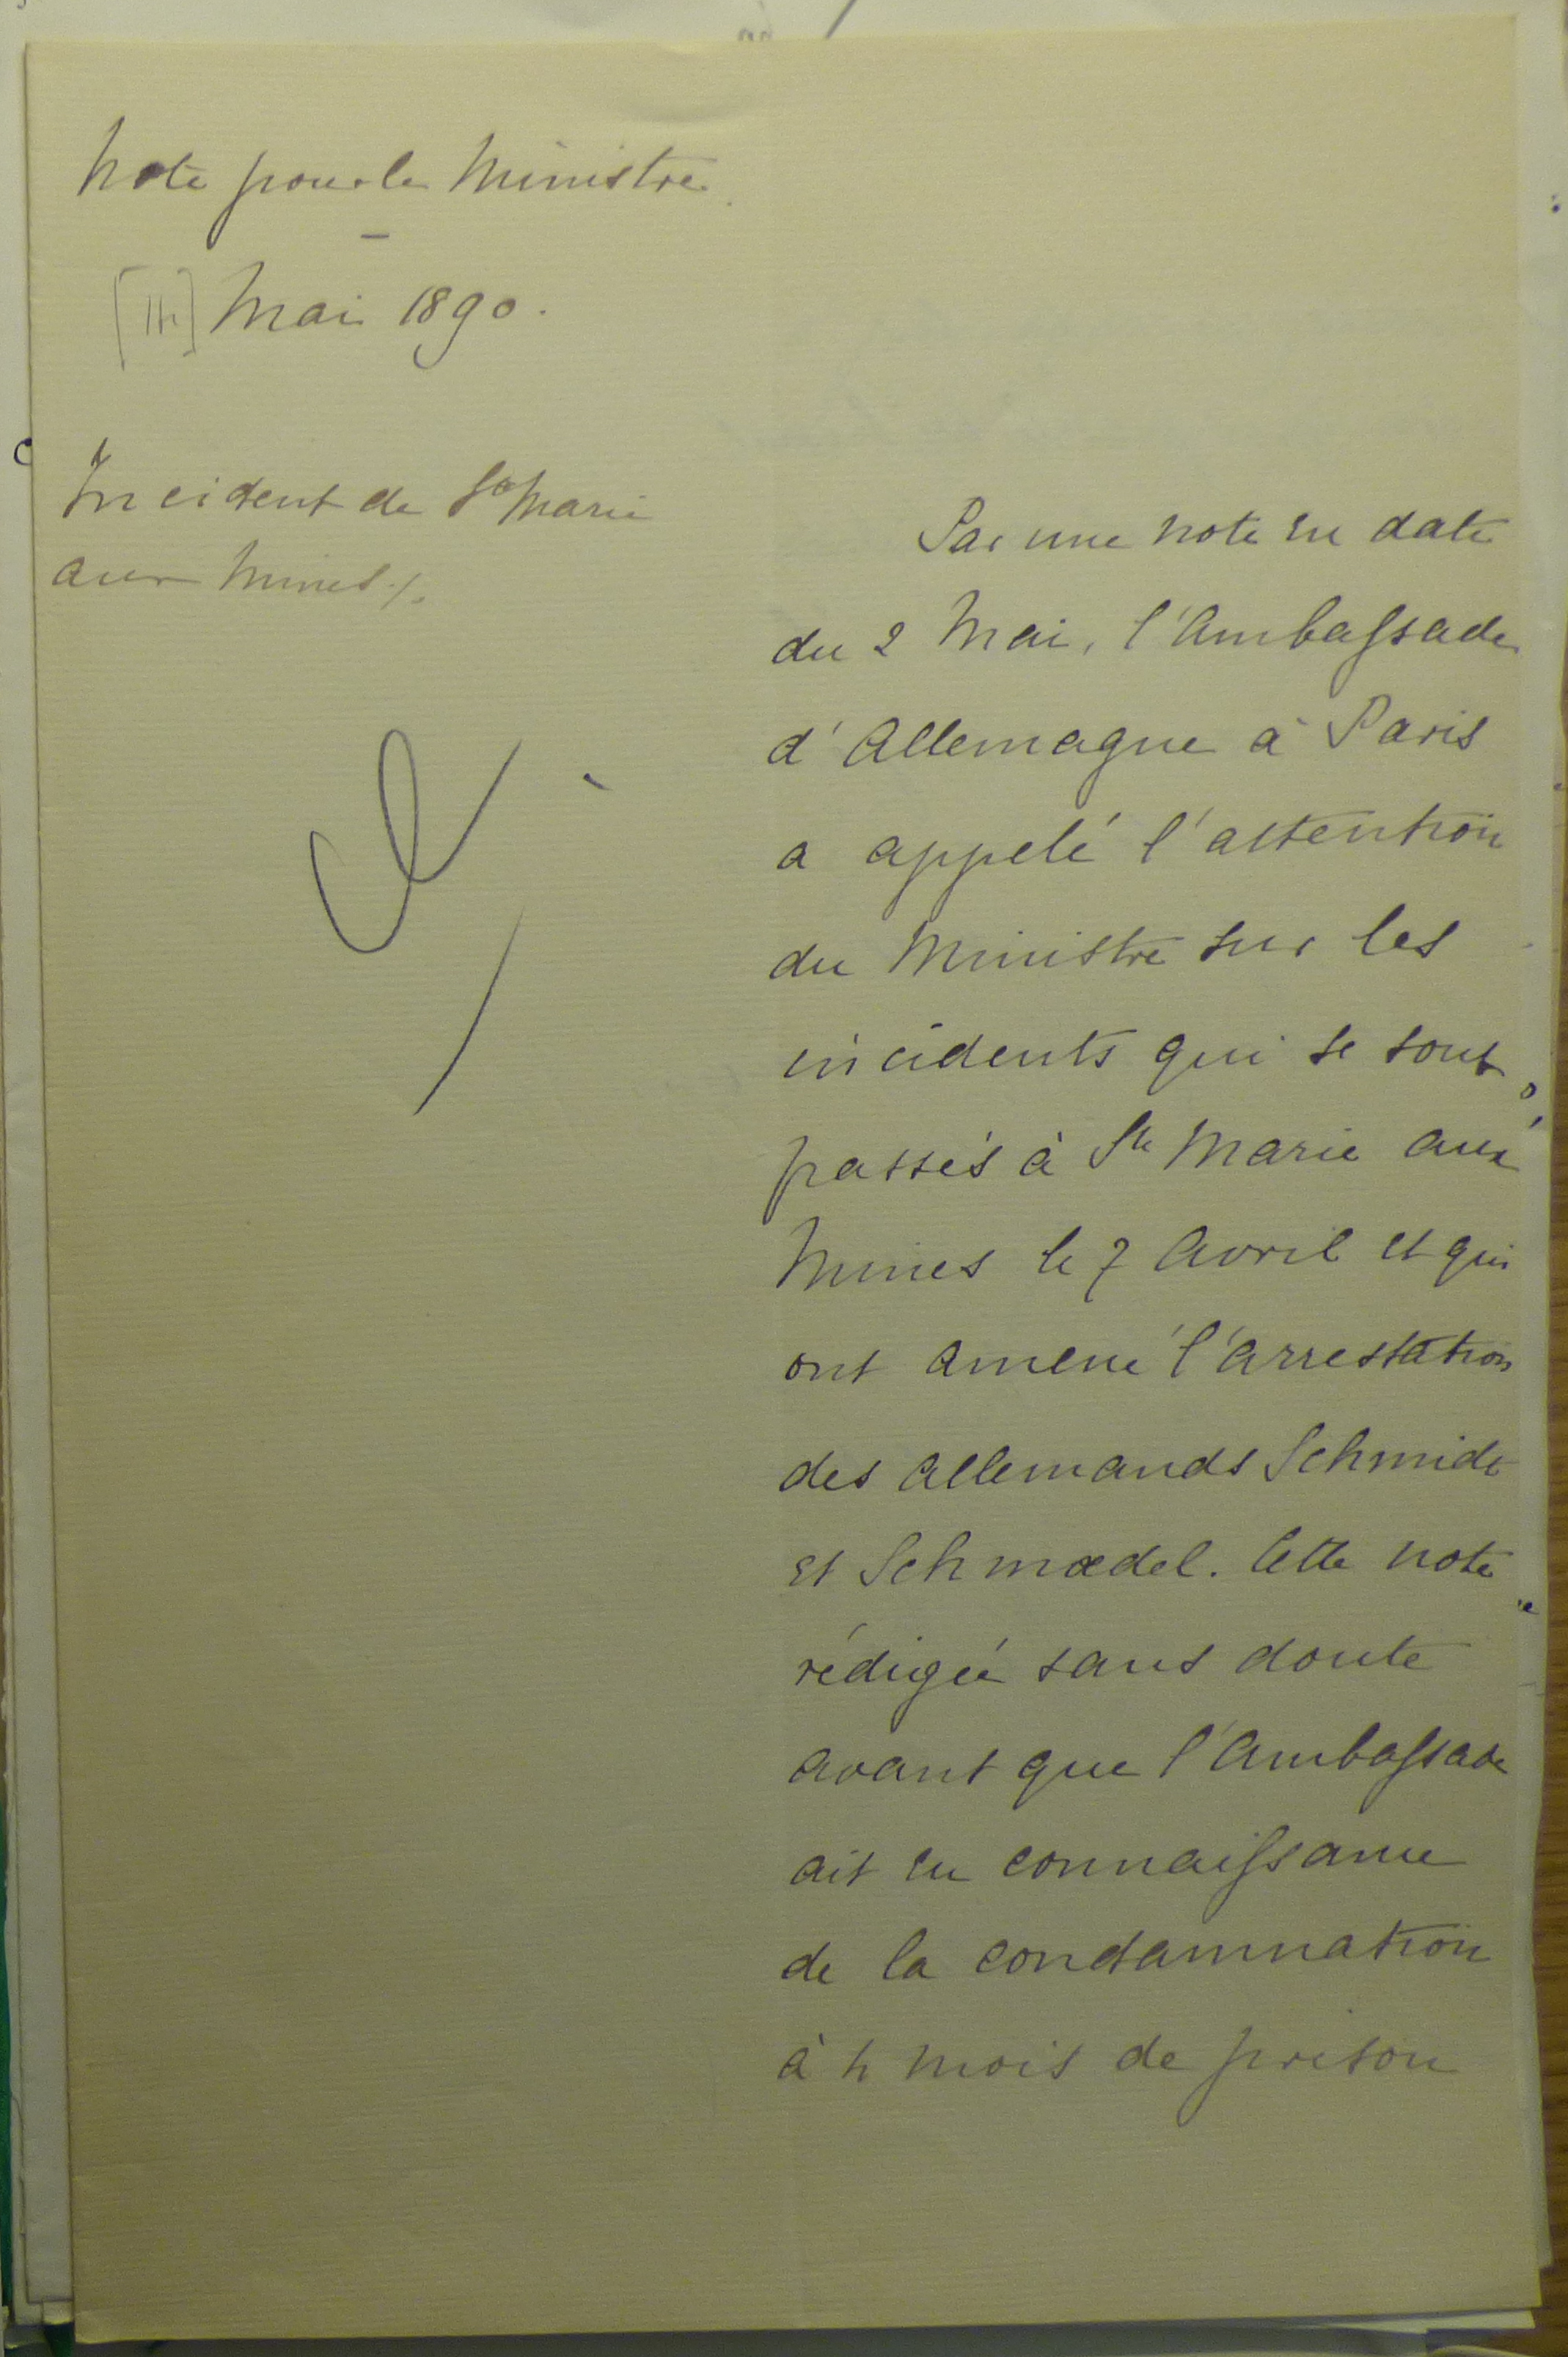 Note pour le Ministre.
[14] Mai 1890.
Incident de Ste Marie
aux Mines /.
Par une note en date
du 2 Mai, l'Ambassade
d'Allemagne à Paris
a appelé l'attention
du Ministre sur les
incidents qui se sont
passés à Ste Marie aux
Mines le 7 Avril et qui
ont amené l'arrestation
des allemands Schmidt
et Schmædel. Cette note
rédigée sans doute
avant que l'Ambassade
ait eu connaissance
de la condamnation
à 4 mois de prison